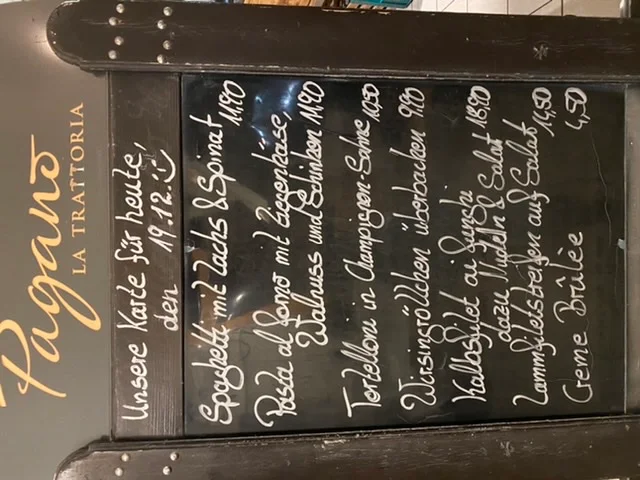 Pagano
LA TRATTORIA
Unsere Karte für heute,
den 19.12. :)
Spaghetti mit Lachs & Spinat 11,90
Pasta al forno mit Ziegenkäse,
Walnuss und Schinken 11,90
Tortelloni in Champignon-Sahne 10,50
Wirsingröllchen überbacken 9,90
Kalbsfilet ai funghi
dazu Nudeln & Salat 18,90
Lammfiletstreifen auf Salat 14,50
Creme Brûlèe 4,50